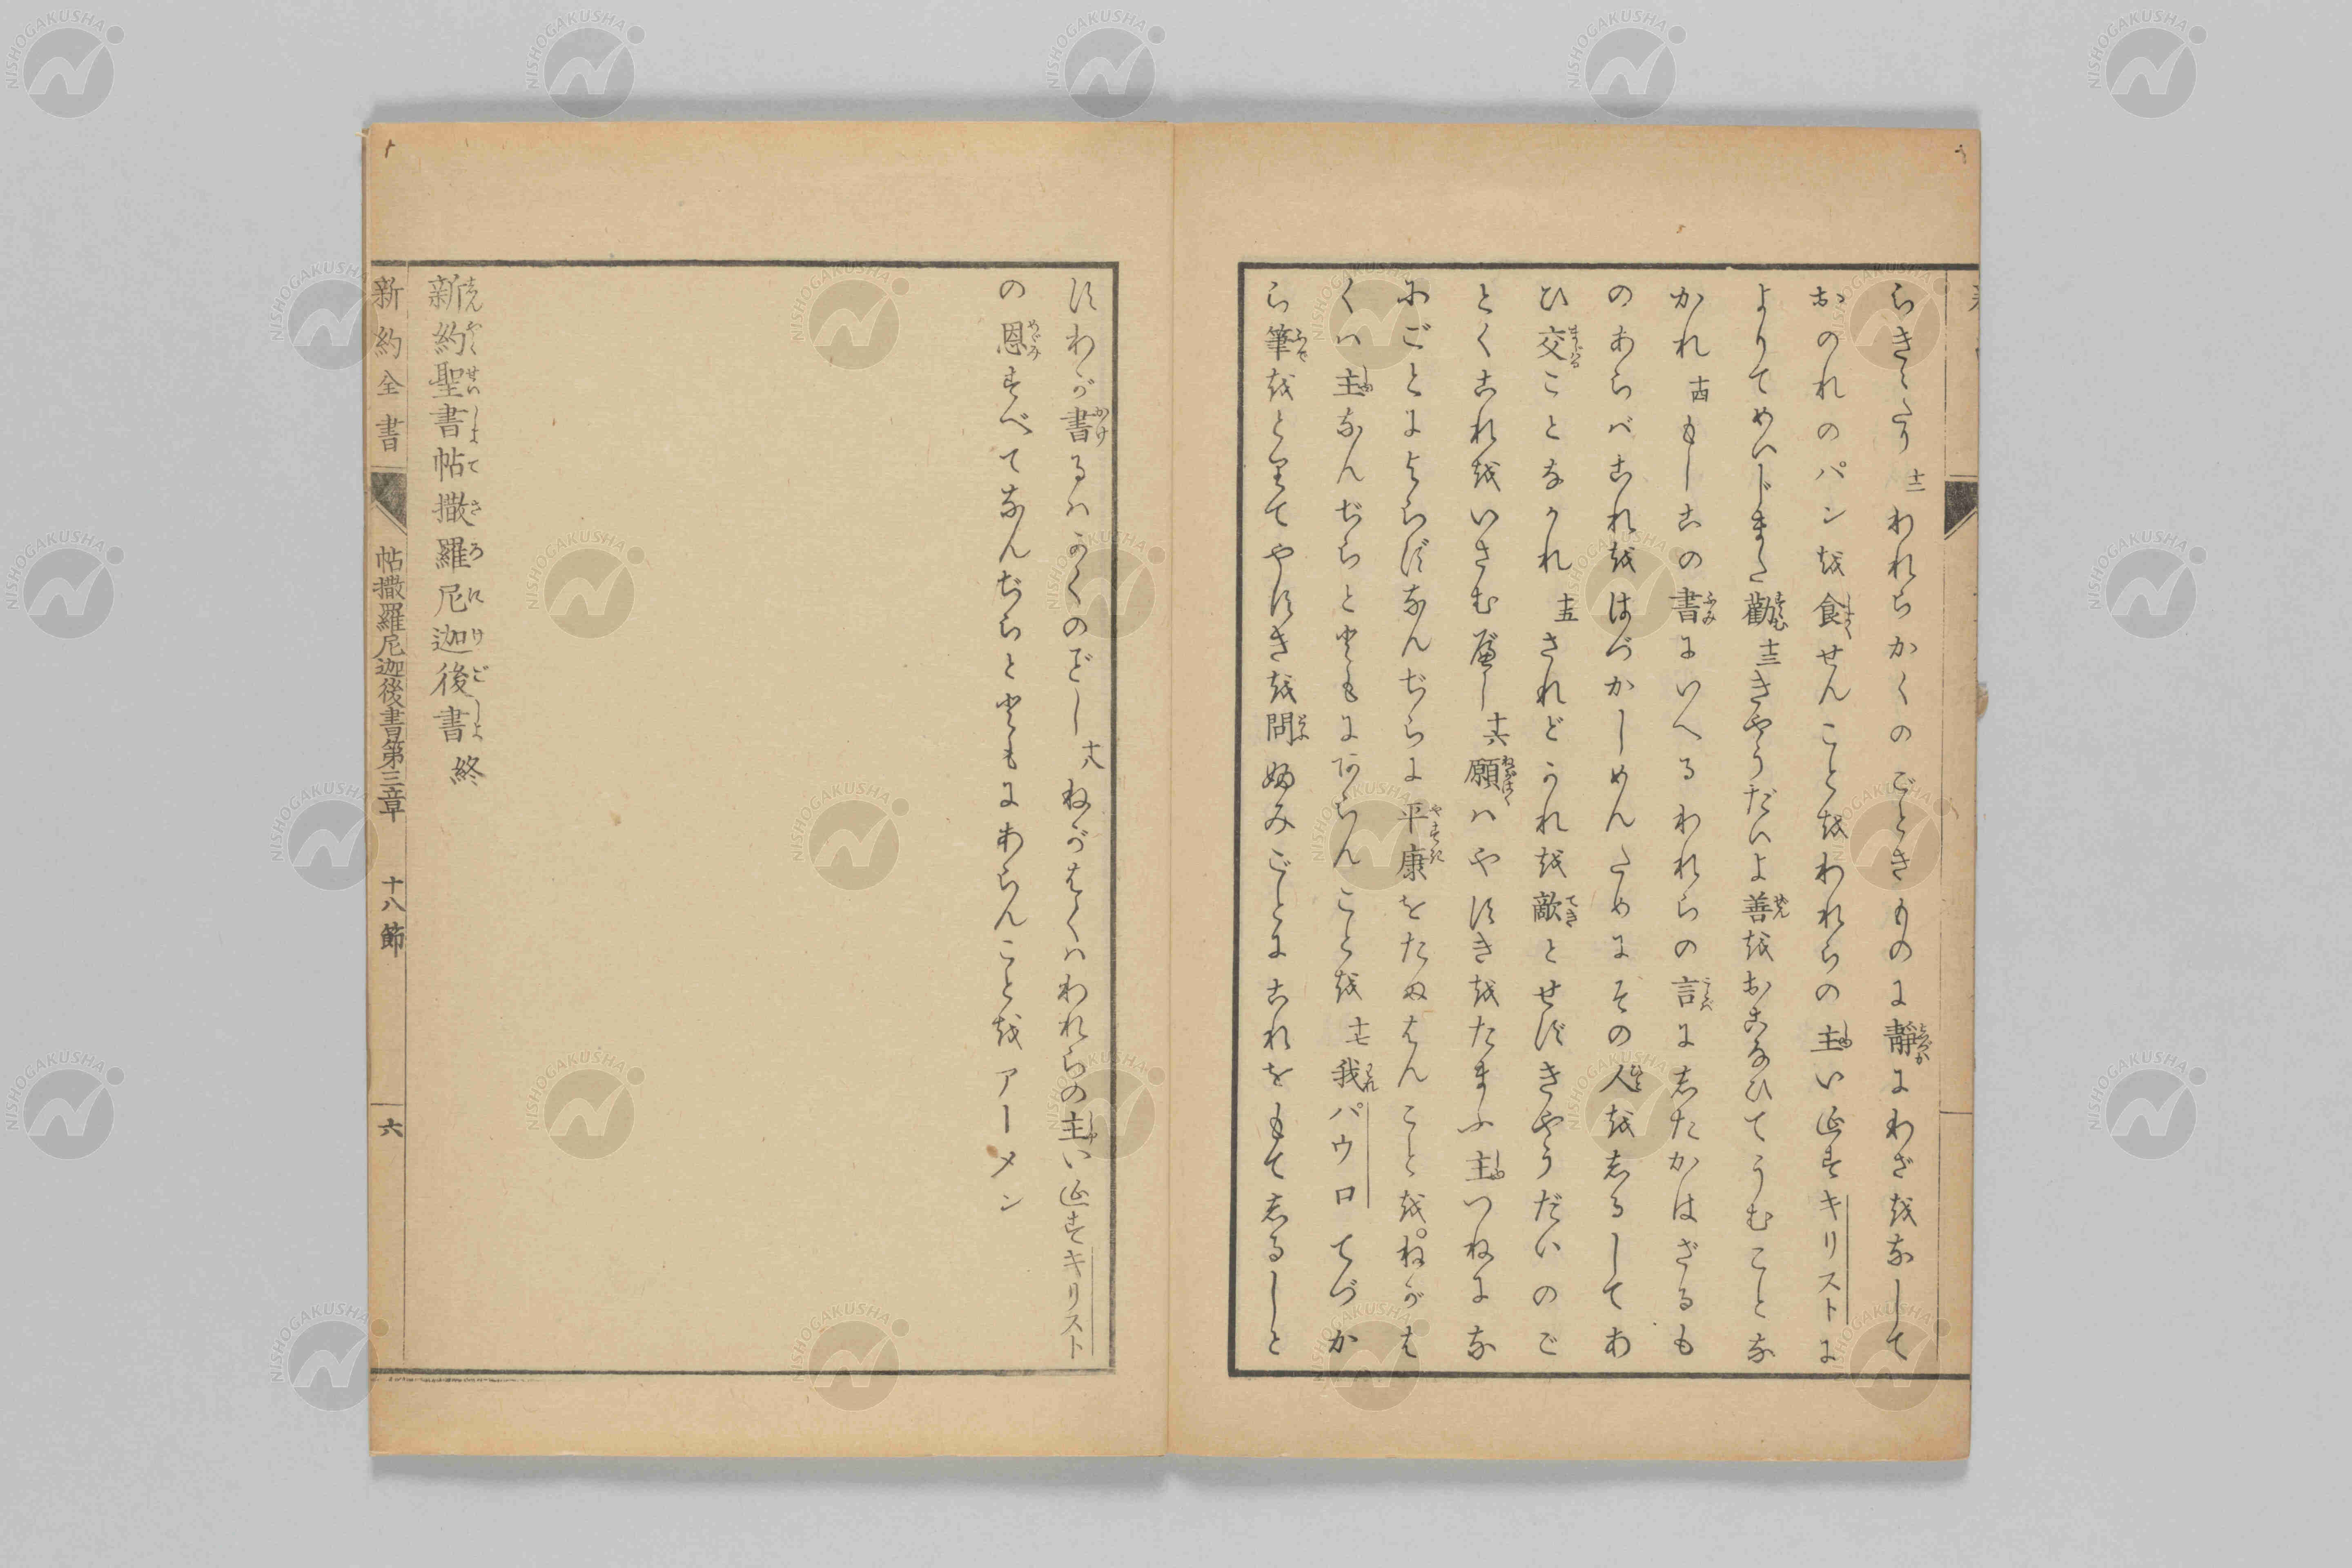 らきゝたり 十二 われらかくのごときものに靜にわざをなして
おのれのパンを食せんことをわれらの主いエすキリストに
よりてめいじまた勸む 十三 きやうだいよ善をおこなひてうむことな
かれ 十四 もしこの書にいへるわれらの言にしたかはざるも
のあらばこれをはづかしめんためにその人をしるしてあ
ひ交ことなかれ 十五 されどかれを敵とせずきやうだいのご
とくこれをいさむべし 十六 願ハやすきをたまふ主つねにな
にごとによらずなんぢらに平康をたまはんことを。ねがは
くハ主なんぢらとともにあらんことを 十七 我パウロてづか
ら筆をとりてやすきを問ふみごとにこれをもてしるしと
すわが書るハかくのごとし 十八 ねがはくハわれらの主いエすキリスト
の恩すべてなんぢらとともにあらんことを アーメン
新約聖書帖撒羅尼迦後書 終
新約全書 帖撒羅尼迦後書第三章 十八節 六